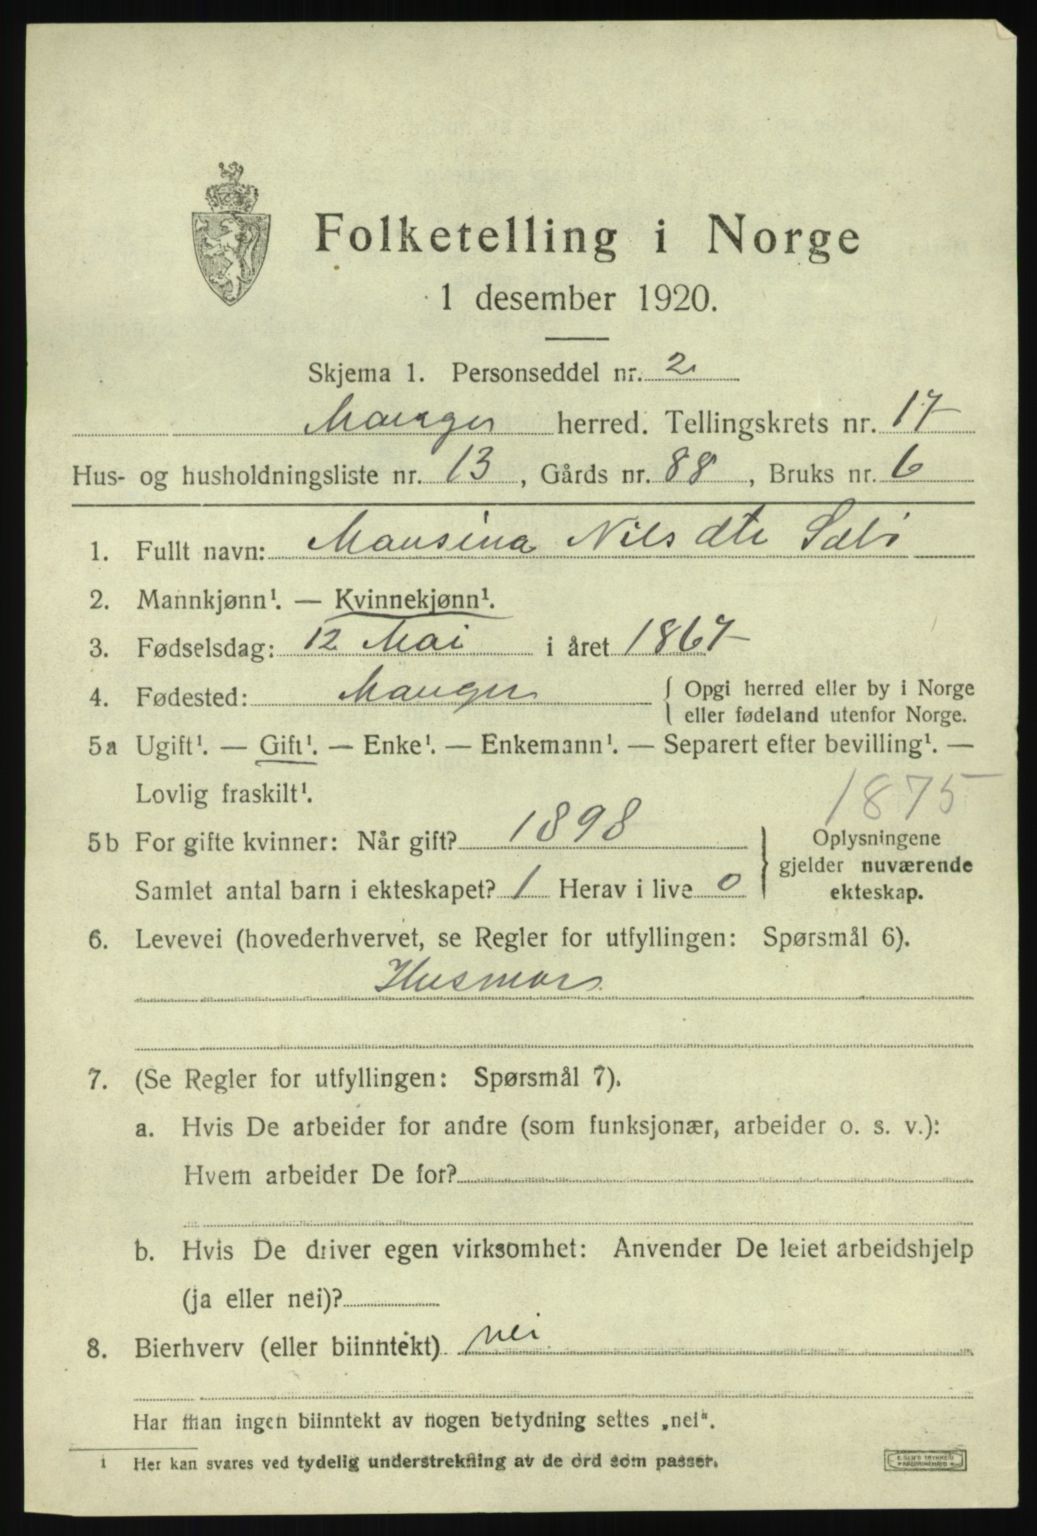 Folketelling i Norge
1 desember 1920.
Skjema 1. Personseddel nr. 2
Manger herred. Tellingskrets nr. 17
Hus- og husholdningsliste nr. 13, Gårds nr. 88, Bruks nr. 6
1. Fullt navn: Mansina Nils dtr Sæbø
2. Mannkjønn¹. — Kvinnekjønn¹.
3. Fødselsdag: 12 Mai i året 1867
4. Fødested: Manger { Opgi herred eller by i Norge
eller fødeland utenfor Norge.
5a Ugift¹. — Gift¹. — Enke¹. — Enkemann¹. — Separert efter bevilling¹. —
Lovlig fraskilt¹.
1875
5b For gifte kvinner: Når gift? 1898
Samlet antal barn i ekteskapet? 1 Herav i live 0
} Oplysningene
gjelder nuværende
ekteskap.
6. Levevei (hovederhvervet, se Regler for utfyllingen: Spørsmål 6).
Husmor
7. (Se Regler for utfyllingen: Spørsmål 7).
a. Hvis De arbeider for andre (som funksjonær, arbeider o. s. v.):
Hvem arbeider De for?
b. Hvis De driver egen virksomhet: Anvender De leiet arbeidshjelp
(ja eller nei)?
8. Bierhverv (eller biinntekt) nei
Har man ingen biinntekt av nogen betydning settes „nei“.
1 Her kan svares ved tydelig understrekning av de ord som passer.